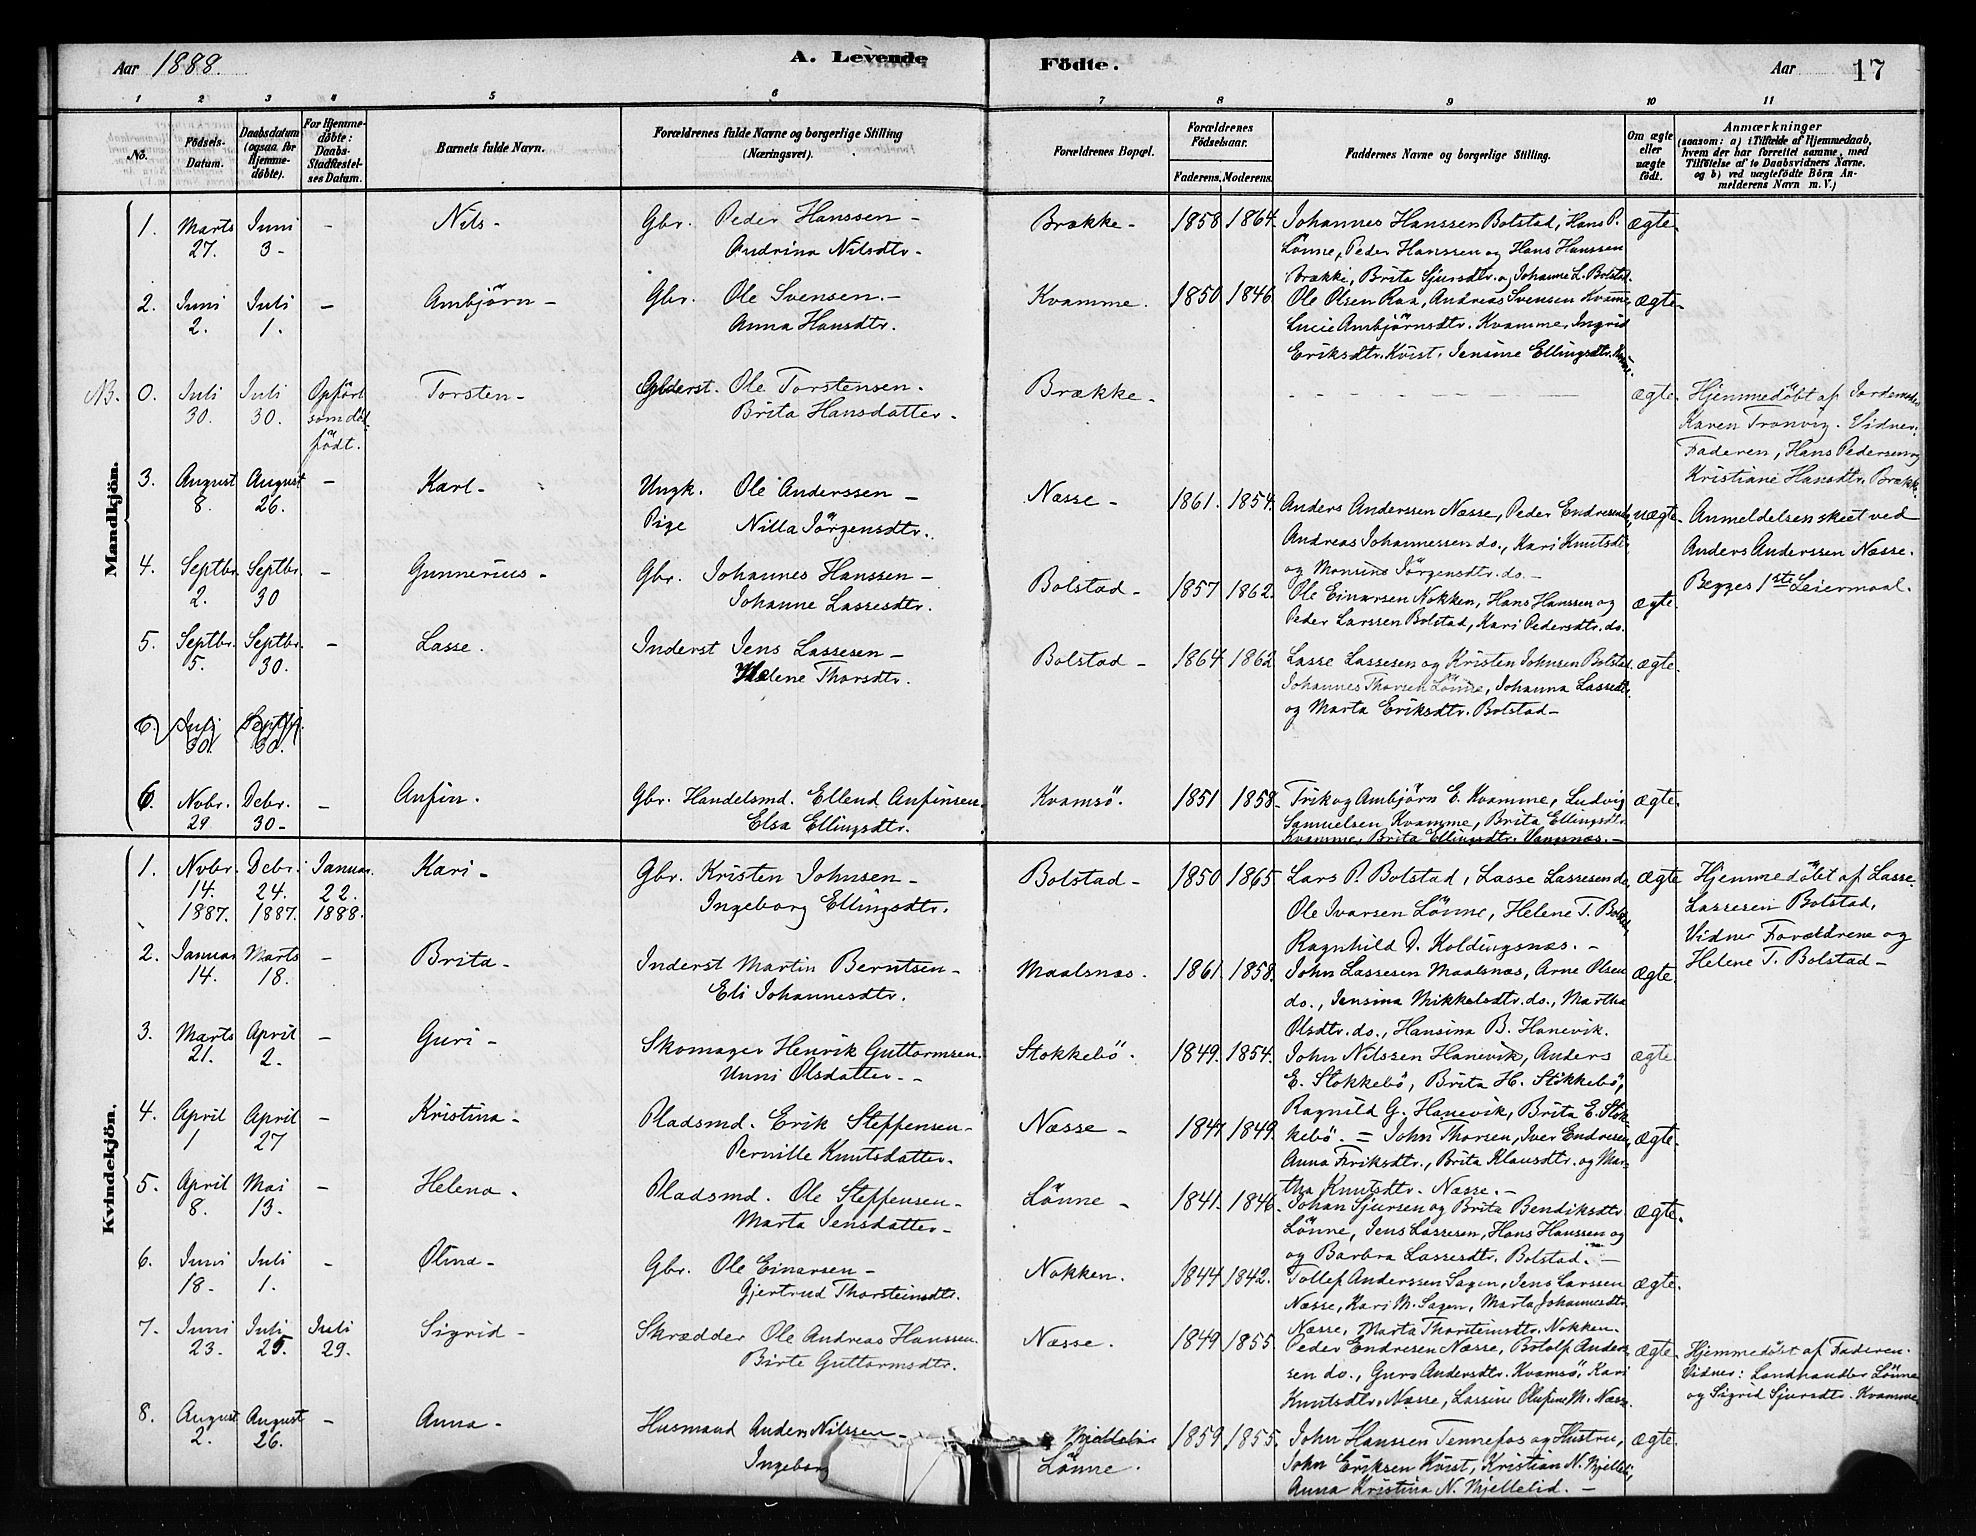 Aar 1888. A. Levende Fødte. Aar 17
1 2 3 4 5 6 7 8 9 10 11
No. Födsels-Datum. Daabsdatum (ogsaa for Hjemme-døbte). For Hjemme-døbte: Daabs-Stadfæstel-ses Datum. Barnets fulde Navn. Forældrenes fulde Navne og borgerlige Stilling (Næringsvei). Forældrenes Bopæl. Forældrenes Födselsaar. Faderens. Moderens. Faddernes Navne og borgerlige Stilling. Om ægte eller uægte födt. Anmærkninger (saasom: a) i Tilfælde af Hjemmedaab, hvem der har forrettet samme, med Tilföielse af to Daabsvidners Navne, og b) ved uægtefödte Börn An-melderens Navn m. V.)
Mandkjön.
1. Marts Juni - Nils - Gbr. Peder Hanssen - Brække - 1858 1864. Johannes Hanssen Bolstad, Hans P. ægte.
27. 3 - Andrina Nilsdtr. Lönne, Peder Hanssen og Hans Hanssen
Brække, Brita Sjursdtr. og Johanne L. Bolstad.
2. Juni Juli - Ambjörn - Gbr. Ole Svensen. - Kvamme. 1850. 1846 Ole Olsen Raa, Andreas Svensen Kvamme, ægte.
2. 1. Anna Hansdtr. Lucie Ambjörnsdtr. Kvamme, Ingrid
Eriksdtr. Kvist, Jensine Ellingsdtr.
NB. 0. Juli Juli Opført Torsten - Inderst. Ole Torstensen. Brække - - - - ægte. Hjemmedöbt af Jordemoder
30. 30. som död- Brita Hansdatter - Karen Tronvig. Vidner:
födt. Faderen, Hans Pedersen og
Kristiane Hansdtr. Brække
3. August August - Karl - Ungk. Ole Anderssen - Næsse - 1861. 1854. Anders Anderssen Næsse, Peder Endresen do, uægte. Anmeldelsen skeet ved
8. 26. Pige Nilla Jörgensdtr. Andreas Johannessen do., Kari Knutsdtr. Anders Anderssen Næsse.
og Monsine Jörgensdtr. do. - Begges 1ste Leiermaal.
4. Septbr. Septbr. - Gunnerius - Gbr. Johannes Hanssen - Bolstad - 1857 1862. Ole Einarsen Nokken, Hans Hanssen og ægte.
2. 30 Johanne Lassesdtr. Peder Larssen Bolstad, Kari Pedersdtr. do.
5. Septbr. Septbr. - Lasse. Inderst Jens Lassesen - Bolstad - 1864. 1862 Lasse Lassesen og Kristen Johnsen Bolstad ægte.
5. 30. Helene Thorsdtr. Johannes Thorsen Lönne, Johanna Lassedtr.
og Marta Eriksdtr. Bolstad -
6. Juli Septbr.
30. 30.
6. Nvbr. Dcbr. - Anfin. Gbr. Handelsmd. Ellend Anfinsen. Kvamsö. 1851 1858. Erik og Ambjörn E. Kvamme, Ludvig ægte.
29 30 - Elsa Ellingsdtr. Samuelsen Kvamme, Brita Ellingsdtr.
Kvamme, Brita Ellingsdtr. Vangsnæs. -
Kvindekjön.
1. Nvbr. Dcbr. Januar. Kari - Gbr. Kristen Johnsen - Bolstad - 1850 1865 Lars P. Bolstad, Lasse Lassesen do, ægte Hjemmedöbt af Lasse
14. 24. 22. Ingeborg Ellingsdtr. Ole Ivarsen Lönne, Helene T. Bolstad, Lassesen Bolstad,
1887. 1887. 1888. Ragnhild D. Koldingsnæs. - Vidner Forældrene og
2. Januar Marts - Brita - Inderst Martin Berntsen - Maalsnæs. 1861. 1858. John Lassesen Maalsnæs, Arne Olsen ægte. Helene T. Bolstad -
14. 18. Eli Johannesdtr. do., Jensina Mikkelsdtr. do., Martha
Olsdtr. do., Hansina B. Hanevik.
3. Marts April - Guri - Skomager Henrik Guttormsen. Stokkebö. 1849. 1854. John Nilssen Hanevik, Anders ægte
21. 2. Unni Olsdatter - E. Stokkebö, Brita H. Stokkebö,
Ragnild G. Hanevik, Brita E. Stok-
4. April April - Kristina - Pladsmd. Erik Steffensen - Næsse - 1847. 1849. kebö. = John Thorsen, Iver Endresen, ægte.
1 27 Pernille Knutsdatter. Anna Eriksdtr., Brita Klausdtr. og Mar-
tha Knutsdtr. Næsse. -
5. April Mai - Helena. Pladsmd. Ole Steffensen - Lönne - 1841. 1846. Johan Sjursen og Brita Bendiksdtr. ægte.
8. 13. Marta Jensdatter - Lönne, Jens Lassesen, Hans Hanssen og
og Barbra Lassesdtr. Bolstad. -
6. Juni Juli - Olina - Gbr. Ole Einarsen - Nokken. 1844 1842. Tollef Anderssen Sagen, Jens Larssen ægte.
18. 1. Gjertrud Thorsteinsdtr. Næsse, Kari M. Sagen, Marta Johannesdtr.
Næsse, Marta Thorsteinsdtr. Nokken.
7. Juni Juli Juli Sigrid - Skrædder Ole Andreas Hanssen. Næsse. 1849 1855. Peder Endresen Næsse, Botolf Anders- ægte. Hjemmedöbt af Faderen.
23. 25. 29. Birte Guttormsdtr. sen do., Guro Andersdtr. Kvamsö, Kari Vidner: Landhandler Lönne
Knutsdtr. Næsse, Lassine Olufine M. Næsse. og Sigrid Sjursdtr. Kvamme
8. August August - Anna - Husmand Anders Nilssen - Mjellelid 1859 1855. John Hanssen Tennefos og Hustru, ægte.
2. 26. Ingeborg Lönne. John Eriksen Kvist, Kristian N. Mjellelid,
Anna Kristina N. Mjellelid. -